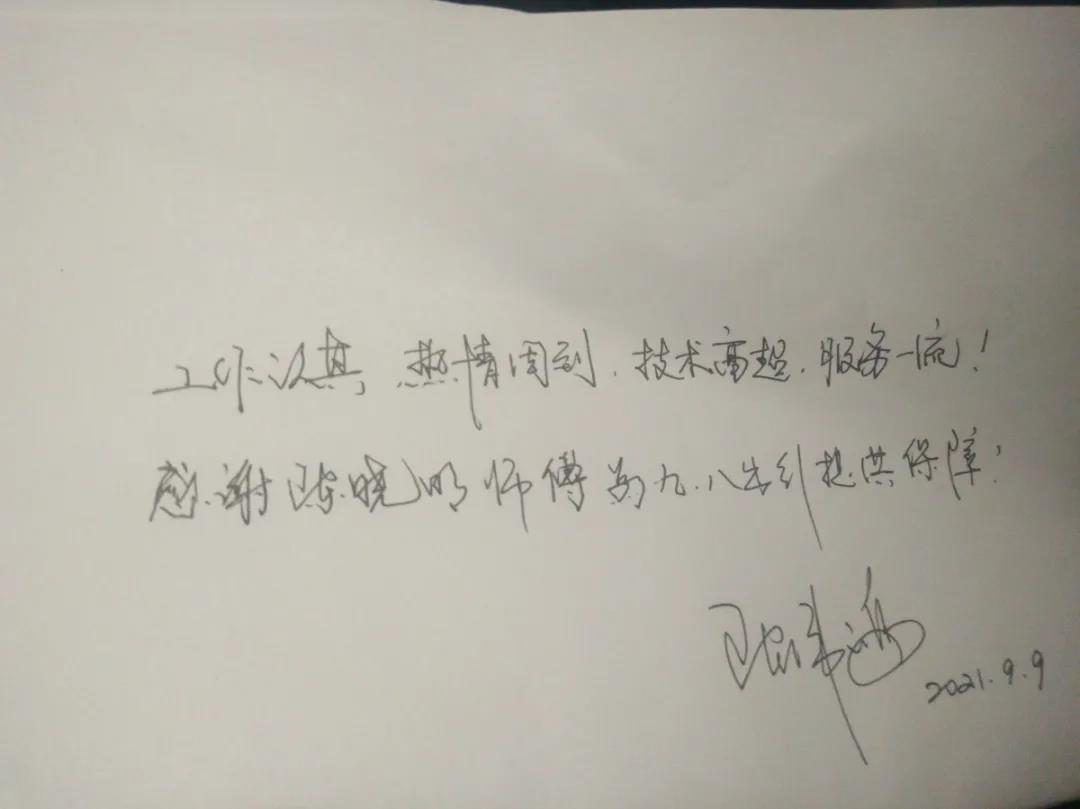 工作认真,热情周到,技术高超,服务一流!
感谢陈晓明师傅为九.八 提供保障!
2021.9.9